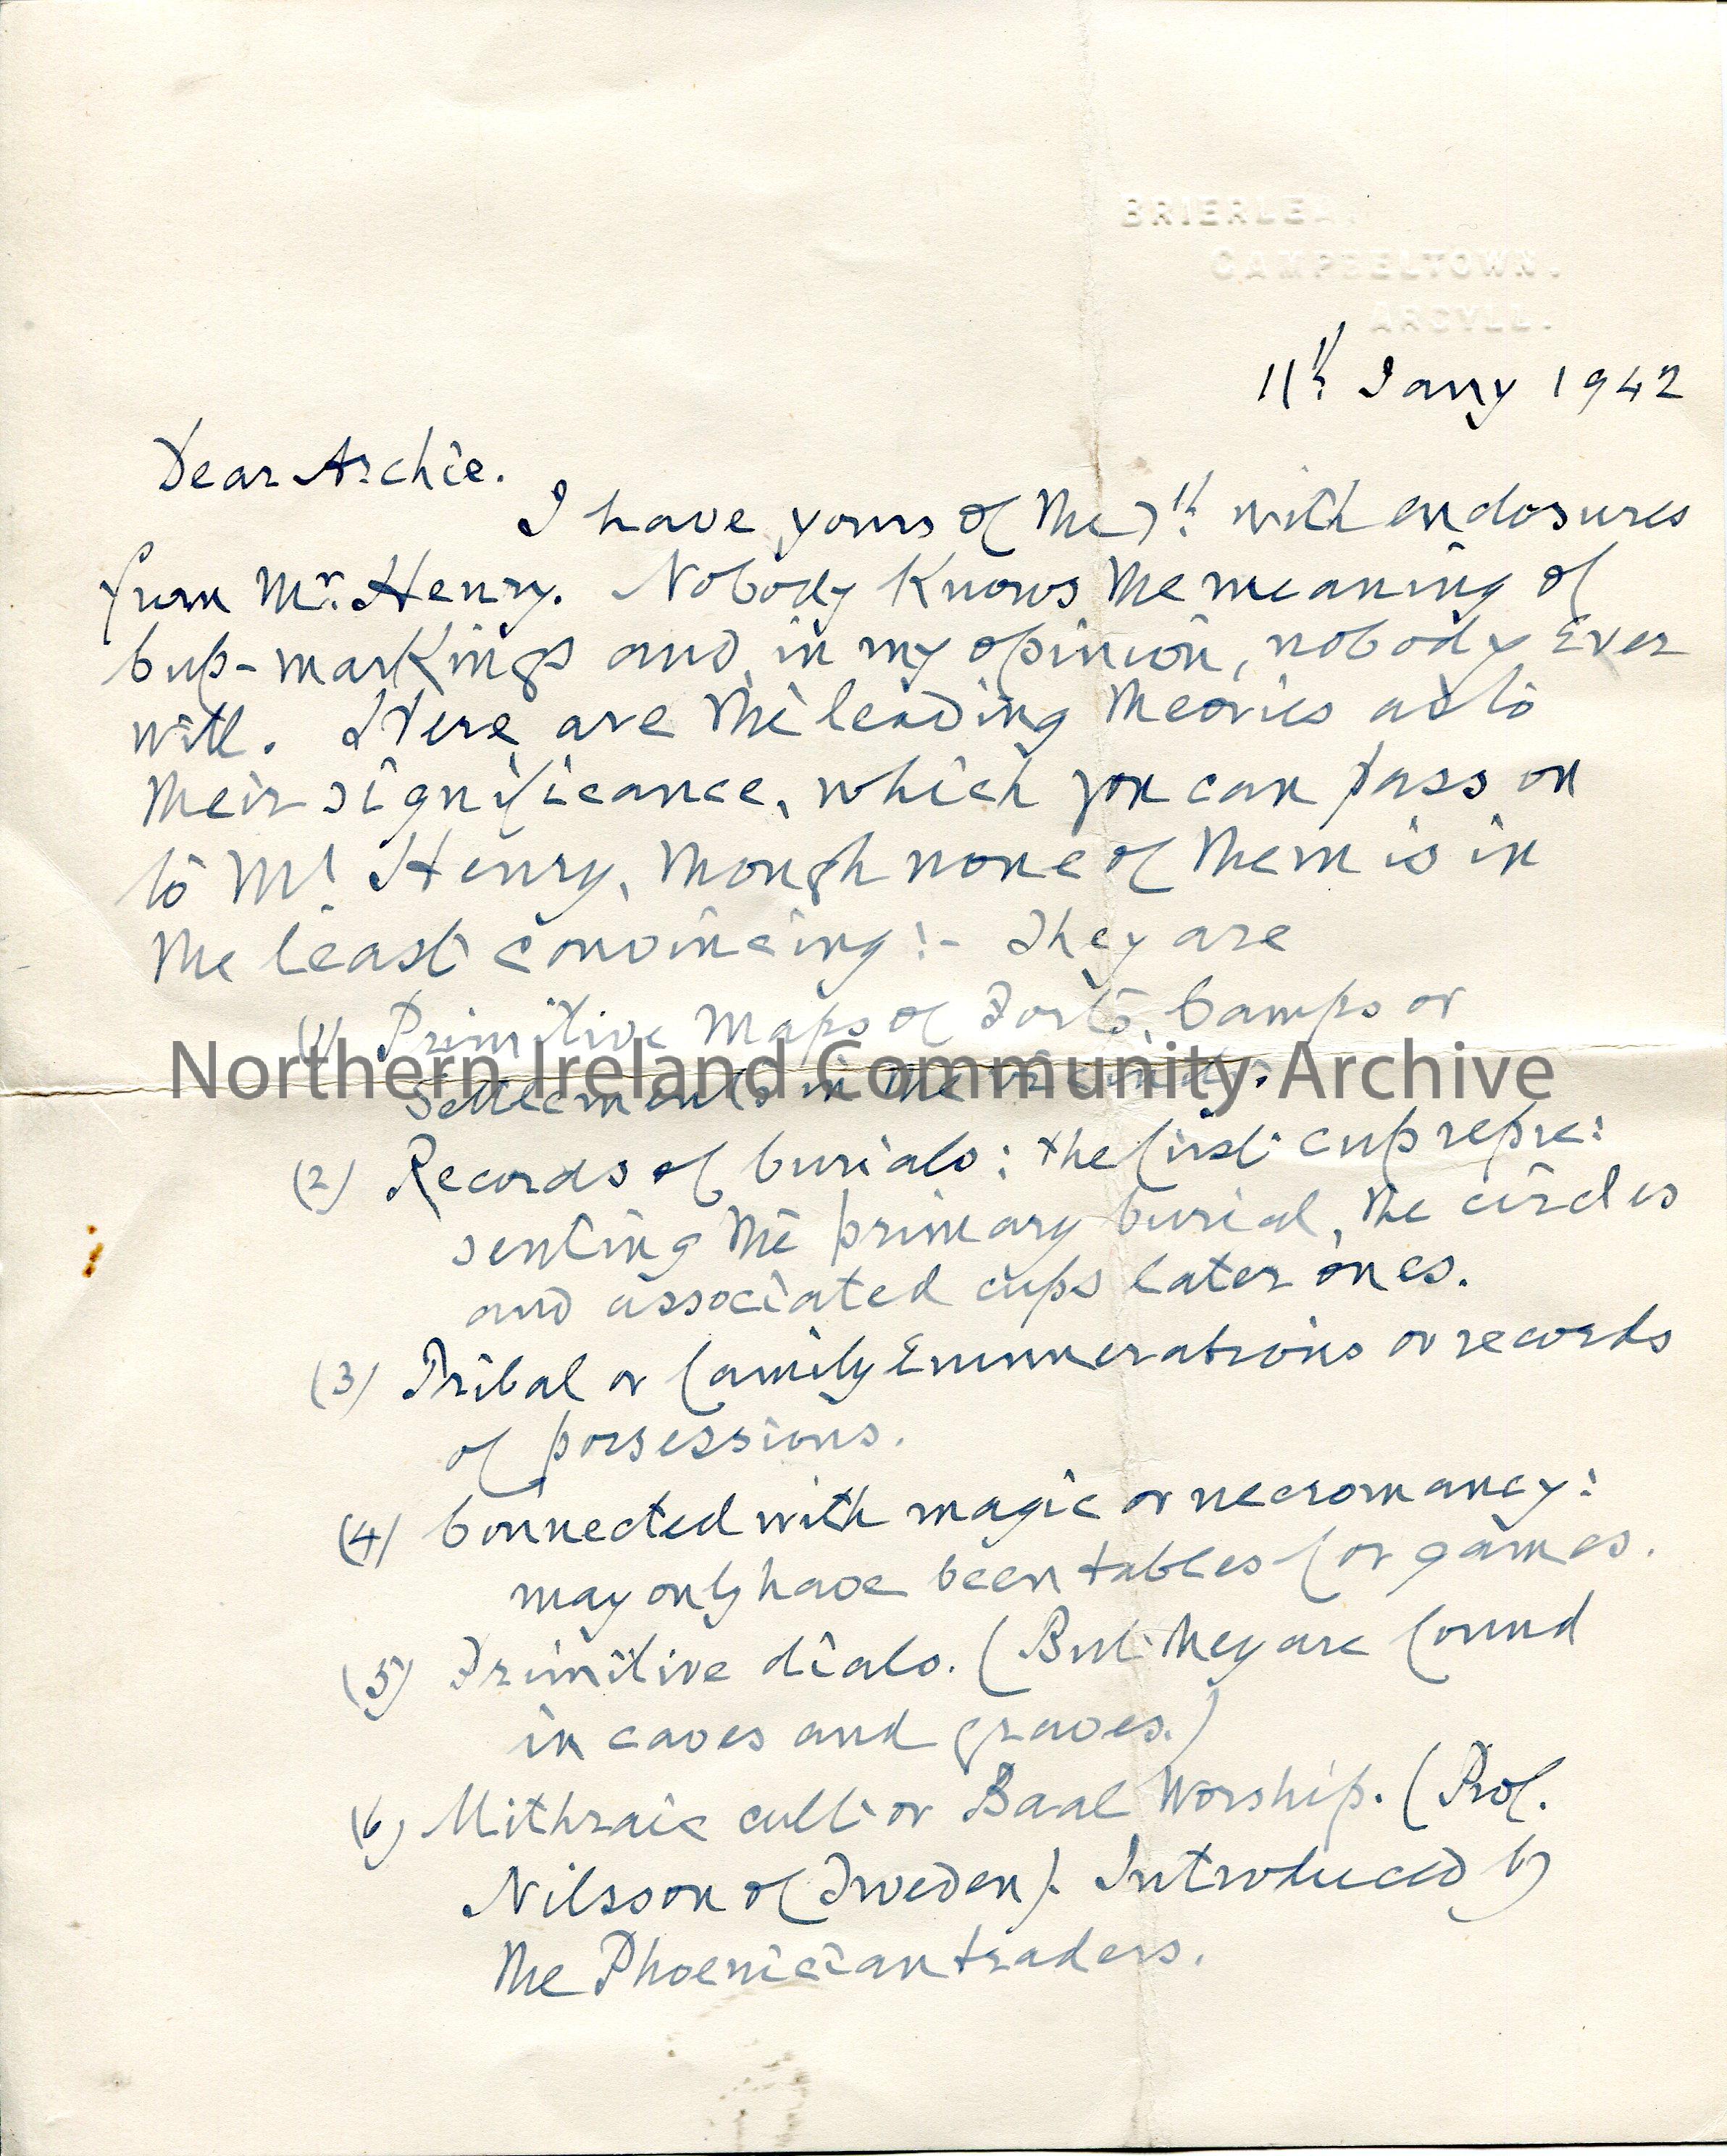 BRIERLEA.
CAMPBELTOWN.
ARGYLL.
11th Jany 1942
Dear Archie.
I have yours of the 7th with enclosures
from Mr. Henry. Nobody knows the meaning of
Cup-markings and, in my opinion, nobody ever
will. Here are the leading theories as to
their significance, which you can pass on
to Mr Henry, though none of them is in
the least convincing:- They are
(1) Primitive Maps of Forts, Camps or
Settlements in the vicinity.
Northern Ireland Community Archive
(2) Records of burials: the first cup repre:
senting the primary burial, the circles
and associated cups later ones.
(3) Tribal or family Enumerations or records
of possessions.
(4) Connected with magic or necromancy:
may only have been tables for games.
(5) Primitive dials. (But they are found
in caves and graves.)
(6) Mithraic cult or Baal Worship. (Prof.
Nilsson of Sweden). Introduced by
the Phoenician traders.